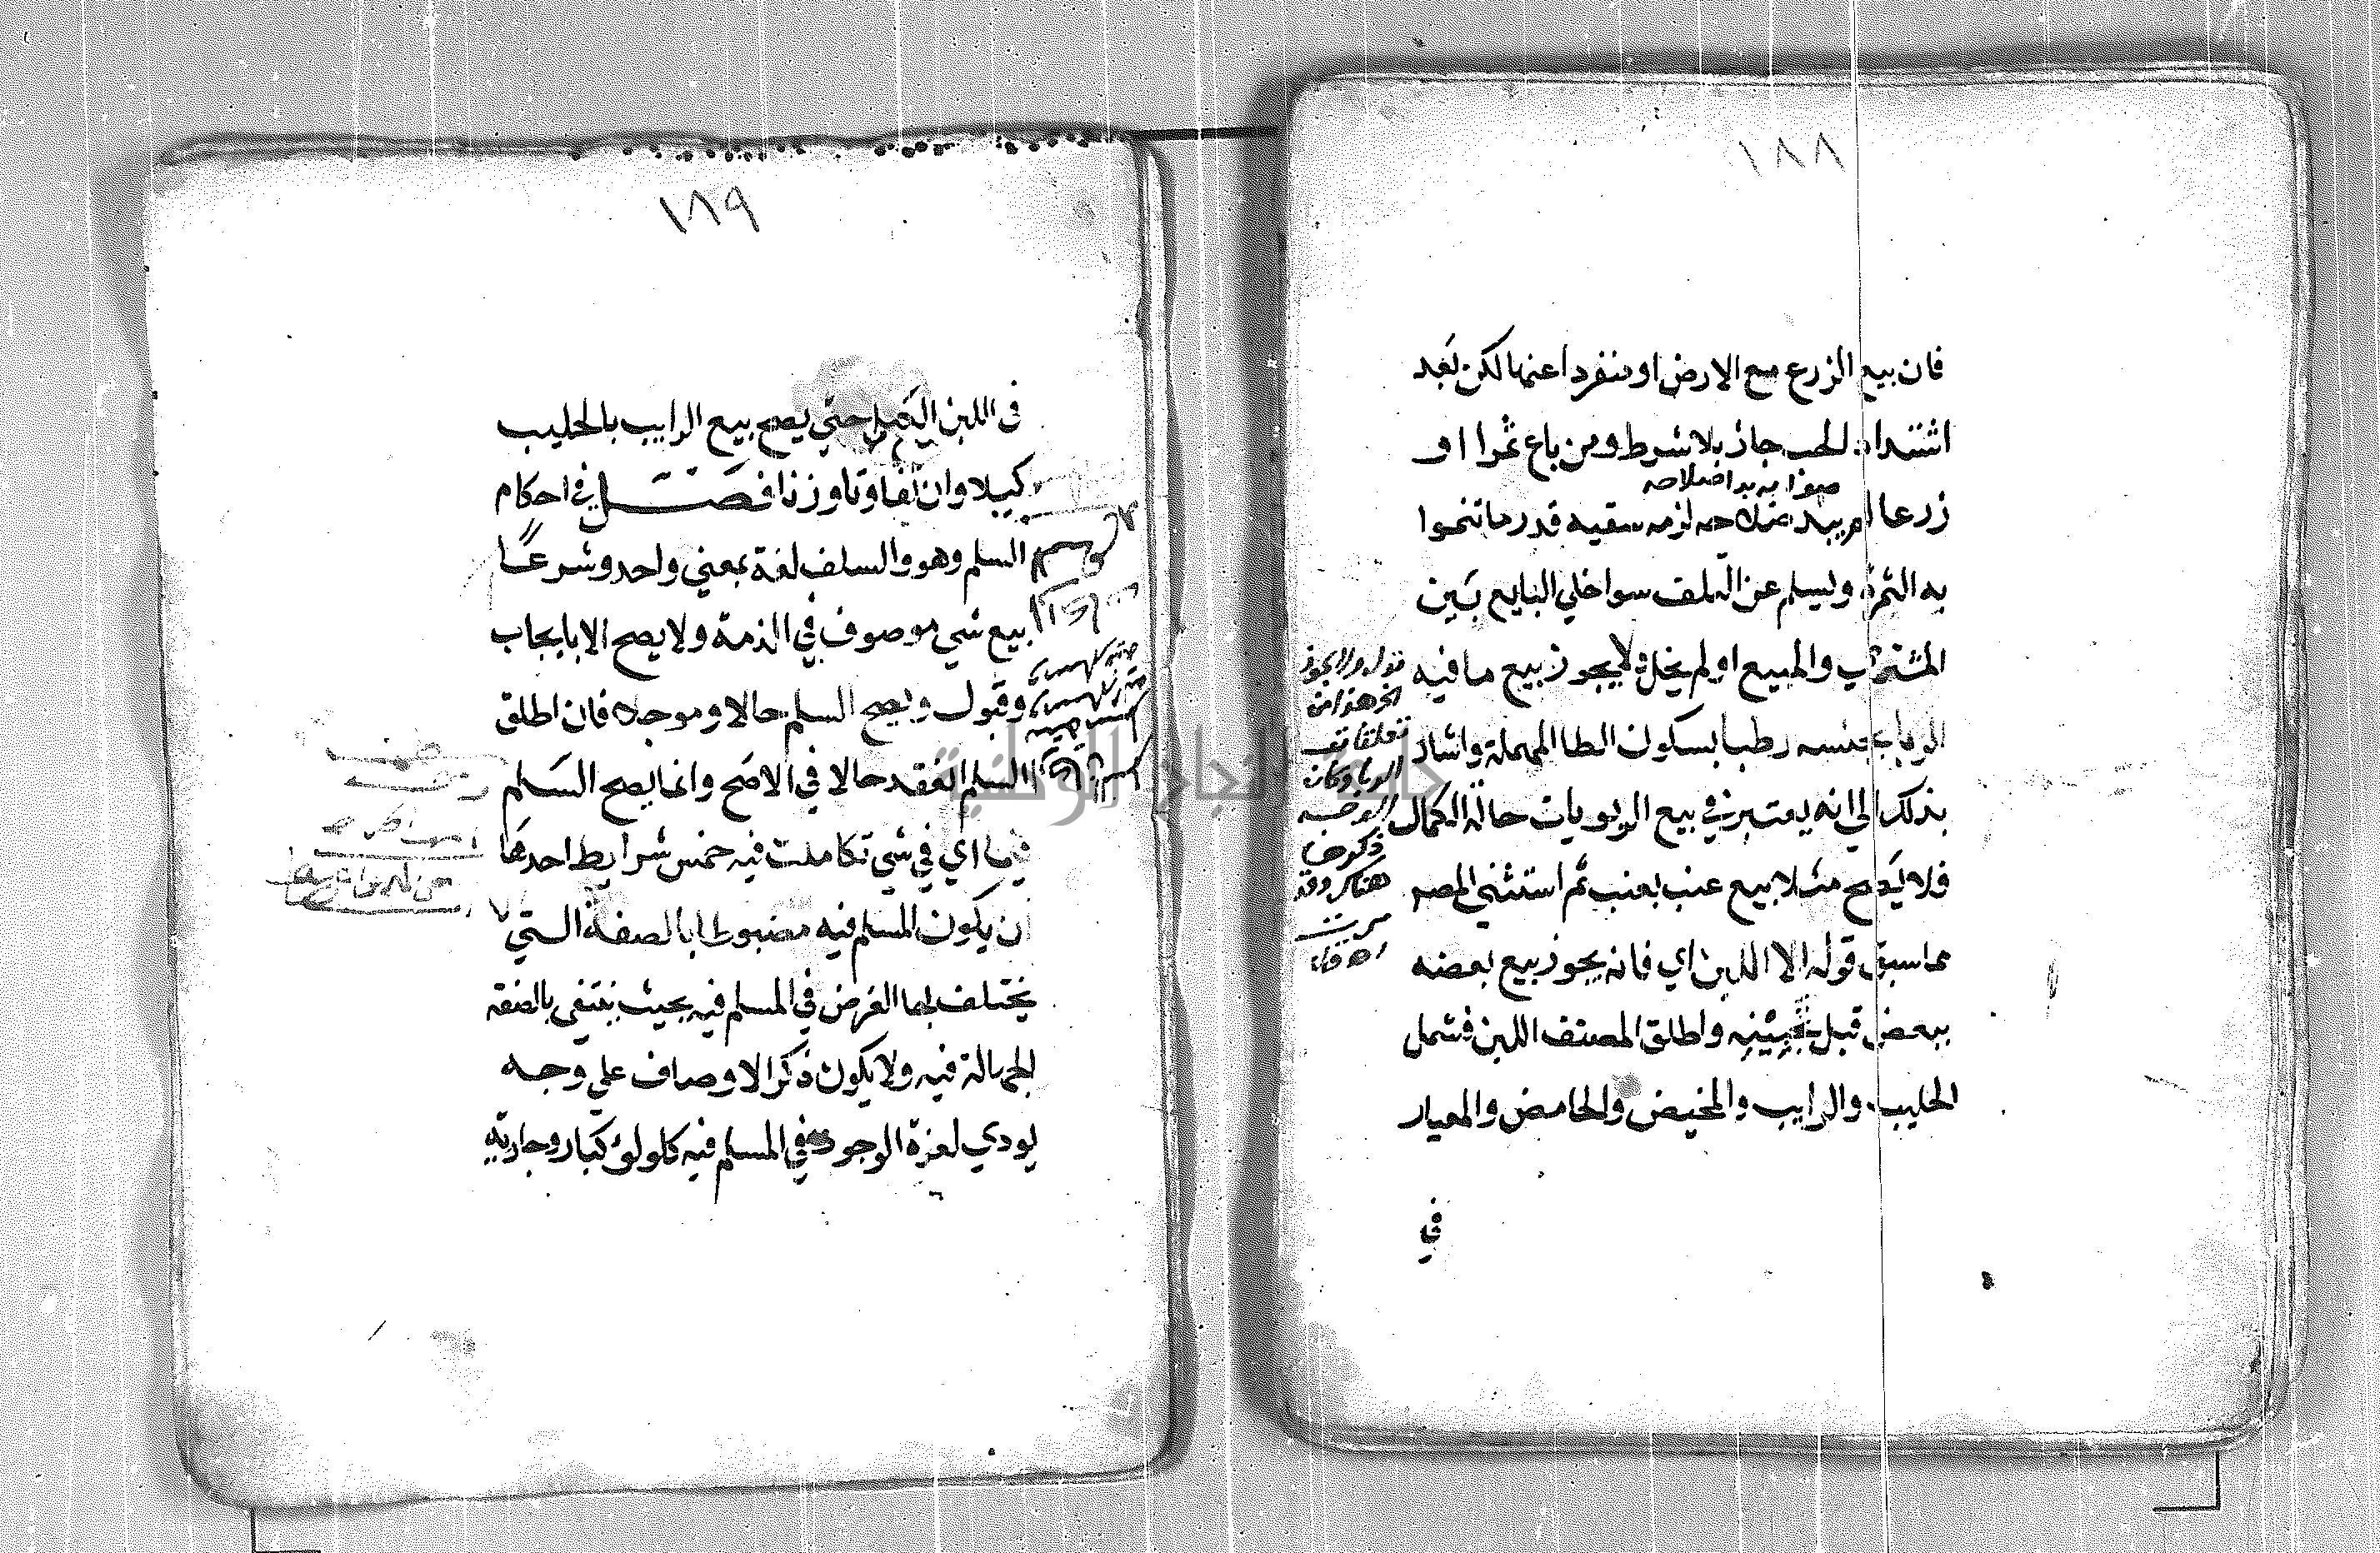 ١٨٨
فان بيع الزرع مع الارض او منفردا عنها لكن بعد
اشتداد الحب جاز بلا شرط ومن باع ثمرا او
صوابه بدا صلاحه
زرعا لم يبد صلاحه لزمه سقيه قدر ما تنموا
به الثمرة ويسلم عن التلف سوا خلي البايع بين
المشتري والمبيع او لم يخل ولا يجوز بيع ما فيه
الربا بجنسه رطبا بسكون الطا المهملة واشار
بذلك الي انه يعتبر في بيع الربويات حالة الكمال
فلا يصح مثلا بيع عنب بعنب ثم استثني المصـ
مما سبق قوله الا اللبن اي فانه يجوز بيع بعضه
ببعض قبل تجبينه واطلق المصنف اللبن فشمل
الحليب والرايب والمخيض والحامض والمعيار
في
قوله ولا يجوز
الخ هذا من
تعلقات
الربا وكان
الاوجه
ذكرها
هناك وقد
مرت
١٨٩
في اللبن الكيل حتي يصح بيع الرايب بالحليب
كيلا وان تفاوتا وزنا فصـــل في احكام
السلم وهو والسلف لغة بمعني واحد وشرعا
بيع شي موصوف في الذمة ولا يصح الا بايجاب
وقبول ويصح السلم حالا وموجلا فان اطلق
السلم انعقد حالا في الاصح وانما يصح السلم
فيما اي في شي تكاملت فيه خمس شرايط احدها
ان يكون المسلم فيه مضبوطا بالصفة التي
يختلف بها الغرض في المسلم فيه بحيث ينتفي بالصفة
الجهالة فيه ولا يكون ذكر الاوصاف علي وجه
يودي لعزة الوجود في المسلم فيه كلولو كبار وجارية
جامعة النجاح الوطنية